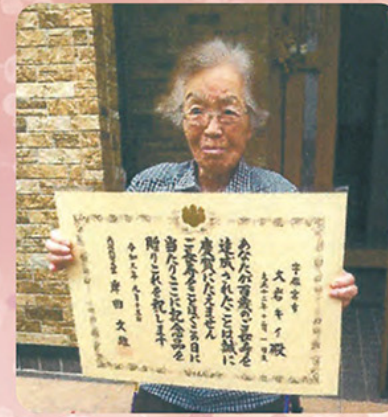 宇都宮市
大岩キイ殿
あなたが百歳のご長寿を
達成されたことは誠に
慶賀にたえません
ご長寿をことほぐこの日に
当たりここに記念品を
贈りこれを祝します
令和 年九月十五日
内閣総理大臣 岸田文雄